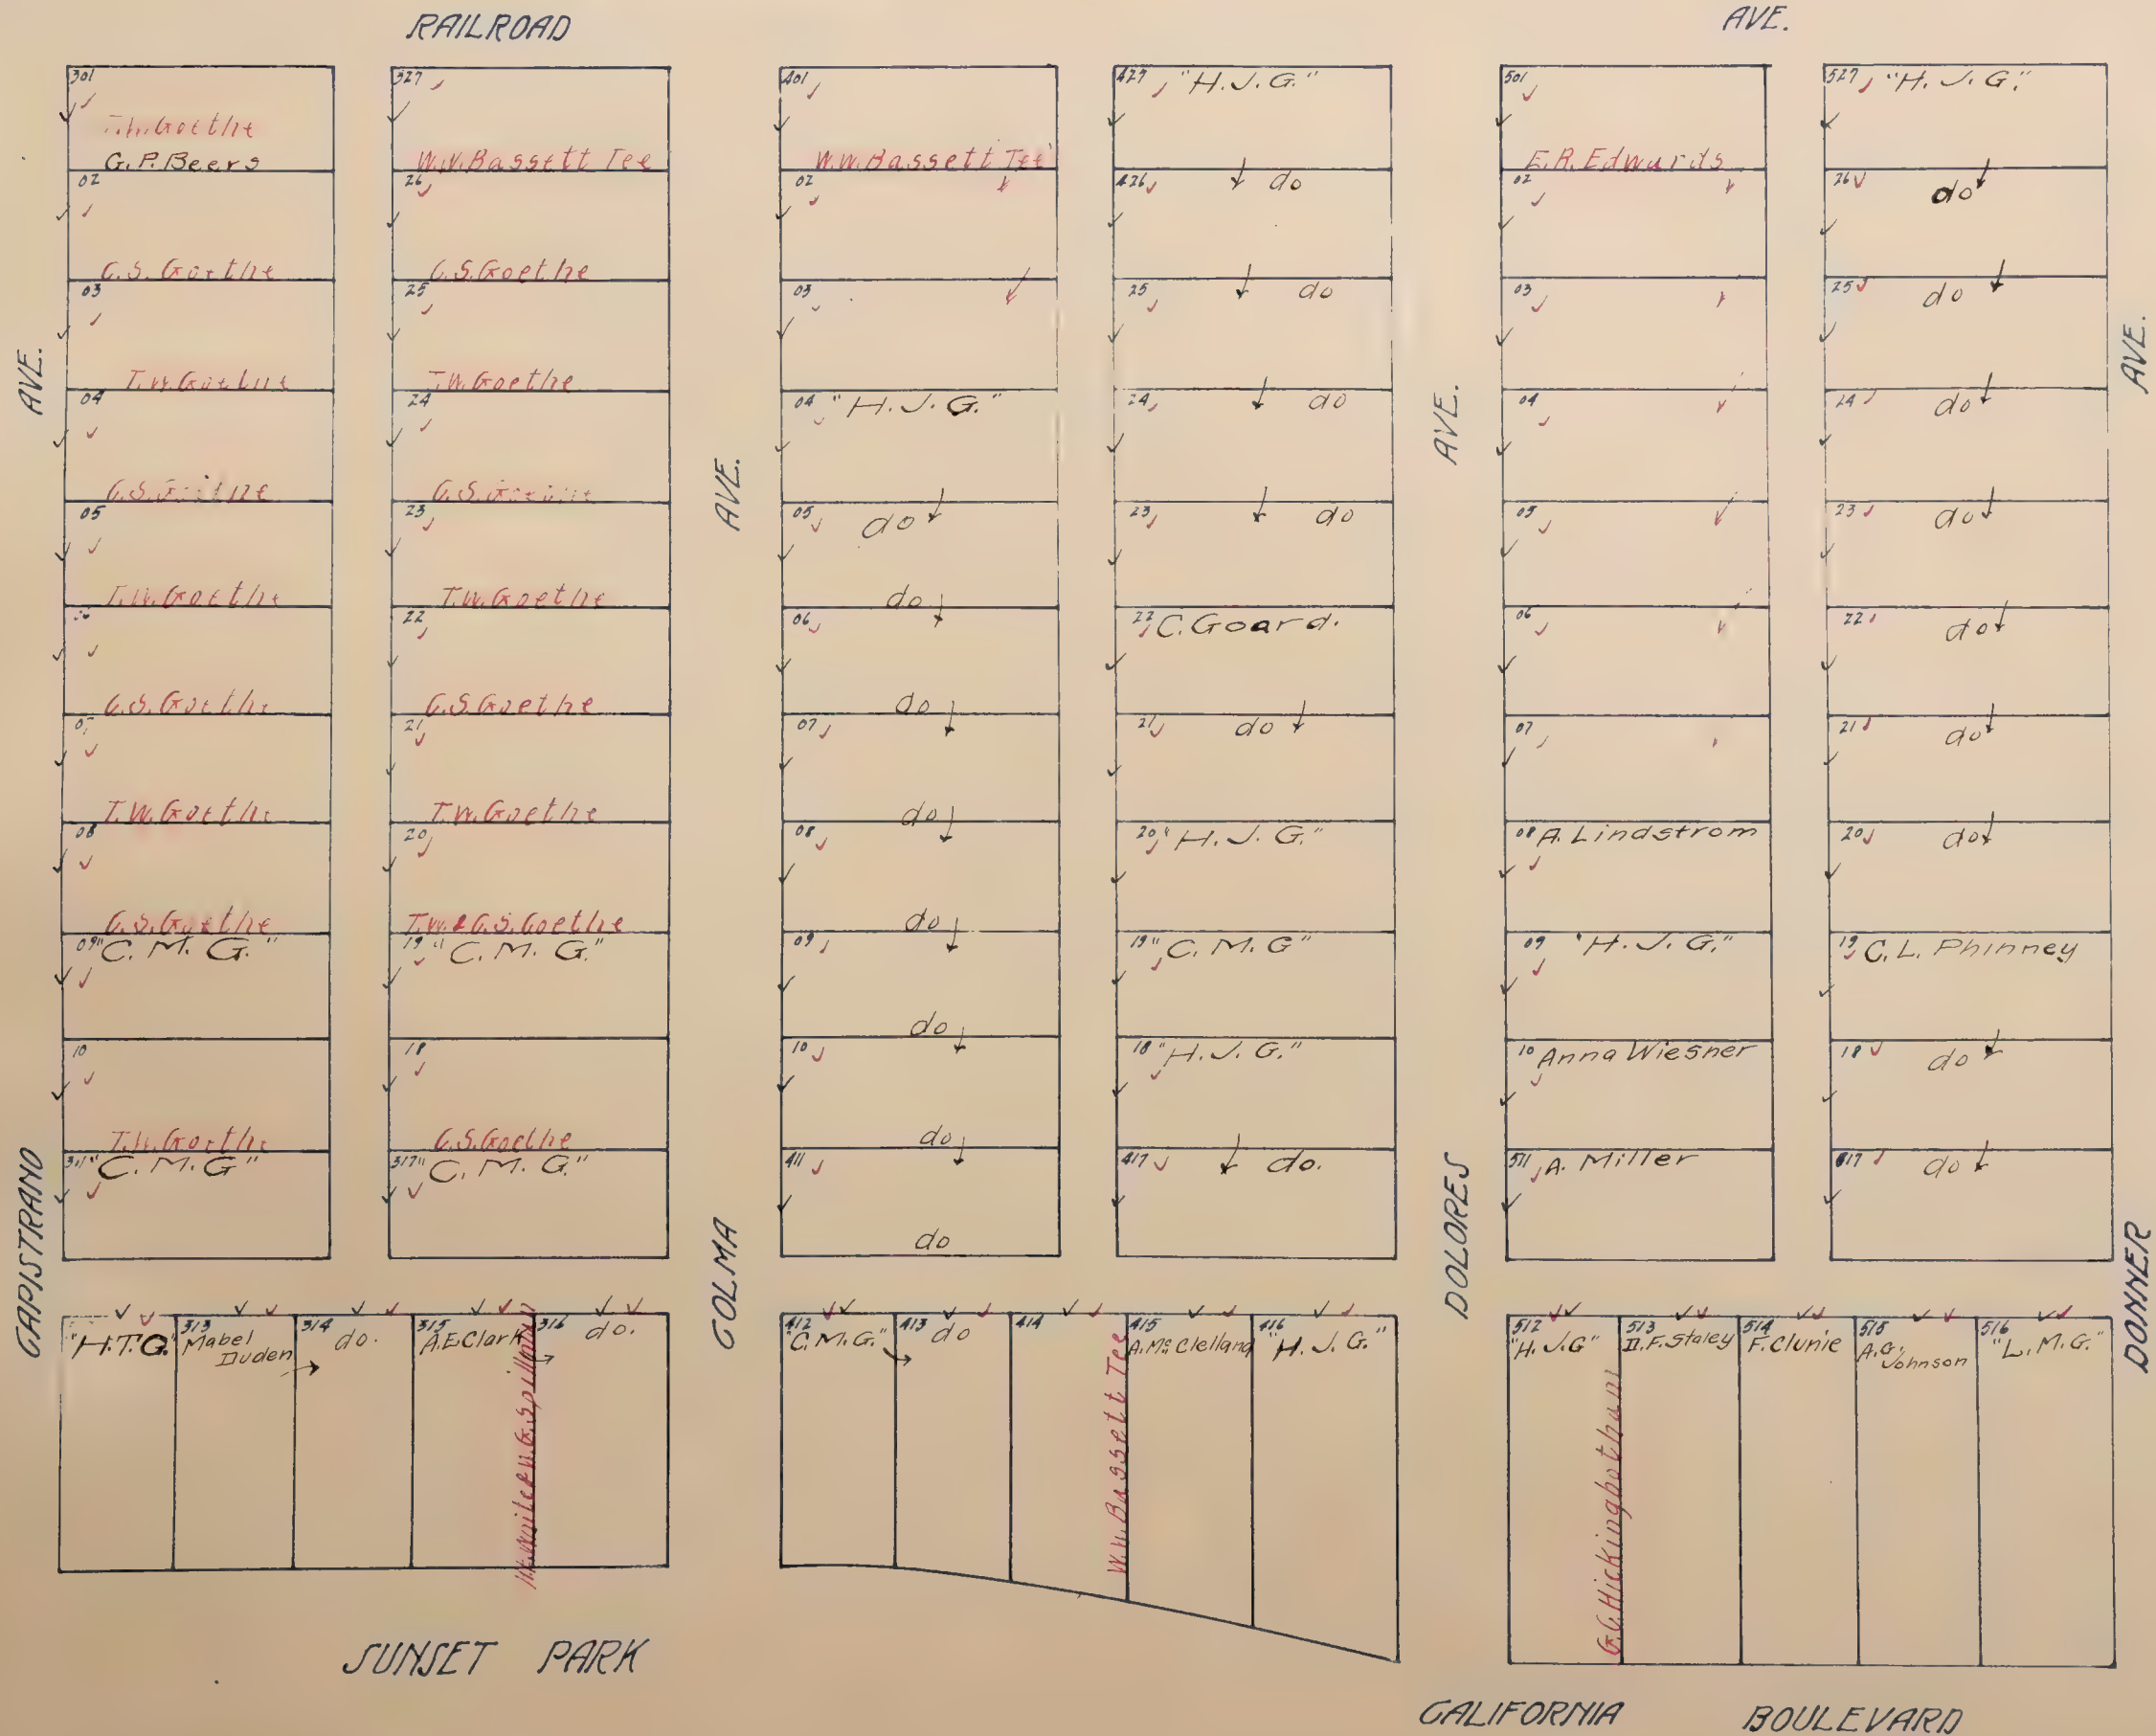 RAILROAD AVE.
301
G.P. Beers
02
C.S. Goethe
03
T.W. Goethe
04
05
T.W. Goethe
C.S. Goethe
07
T.W. Goethe
08
C.S. Goethe
09 "C. M. G."
10
T.W. Goethe
"C. M. G"
327
W.W. Bassett Tee
26
C.S. Goethe
25
T.W. Goethe
24
C.S. Goethe
23
T.W. Goethe
22
C.S. Goethe
21
T.W. Goethe
20
T.W. & C.S. Goethe
19 "C. M. G."
18
C.S. Goethe
317 "C. M. G."
"H.T.G."
313 Mabel
Duden
314 do.
315
A.E. Clark
316 do.
CAPISTRANO AVE.
COLMA AVE.
401
W.W. Bassett Tee
02
03
04 "H. J. G."
05 do
do
06
do
07
do
08
do
09
do
10
do
411
do
427 "H. J. G."
426 do
25 do
24 do
23 do
22 C. Goard.
21 do
20 "H. J. G."
19 "C. M. G"
18 "H. J. G."
417 do.
412
"C. M. G."
413 do
414
W.W. Bassett Tee
415
A. McClelland
416
"H. J. G."
DOLORES AVE.
501
E.R. Edwards
02
03
04
05
06
07
08 A. Lindstrom
09 "H. J. G."
10 Anna Wiesner
511 A. Miller
527 "H. J. G."
26 do
25 do
24 do
23 do
22 do
21 do
20 do
19 C. L. Phinney
18 do
517 do
512
"H. J. G"
G.C. Hickingbotham
513
D. F. Staley
514
F. Clunie
515
A. G.
Johnson
516
"L. M. G."
DONNER AVE.
SUNSET PARK
CALIFORNIA BOULEVARD